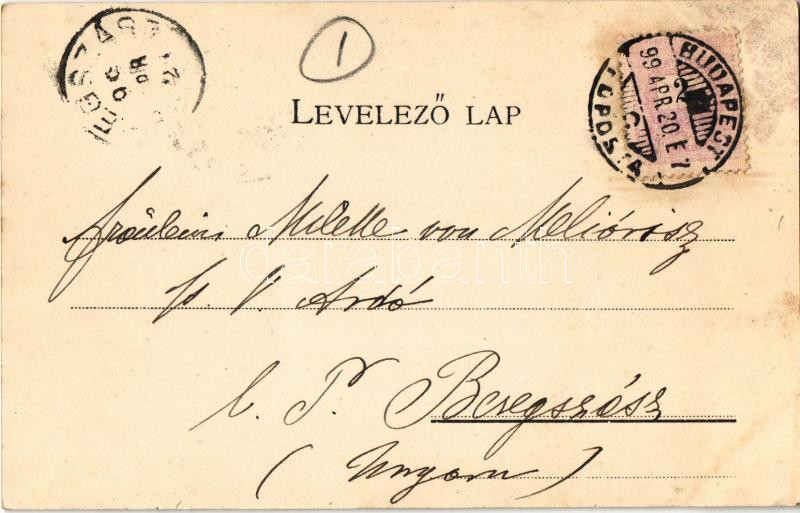 1
LEVELEZŐ LAP
BUDAPEST
99 APR. 20. E 7
FŐPOSTA
Fräulein Milette von Meliórisz
Ardó
Beregszász
(Ungarn)
darabanth